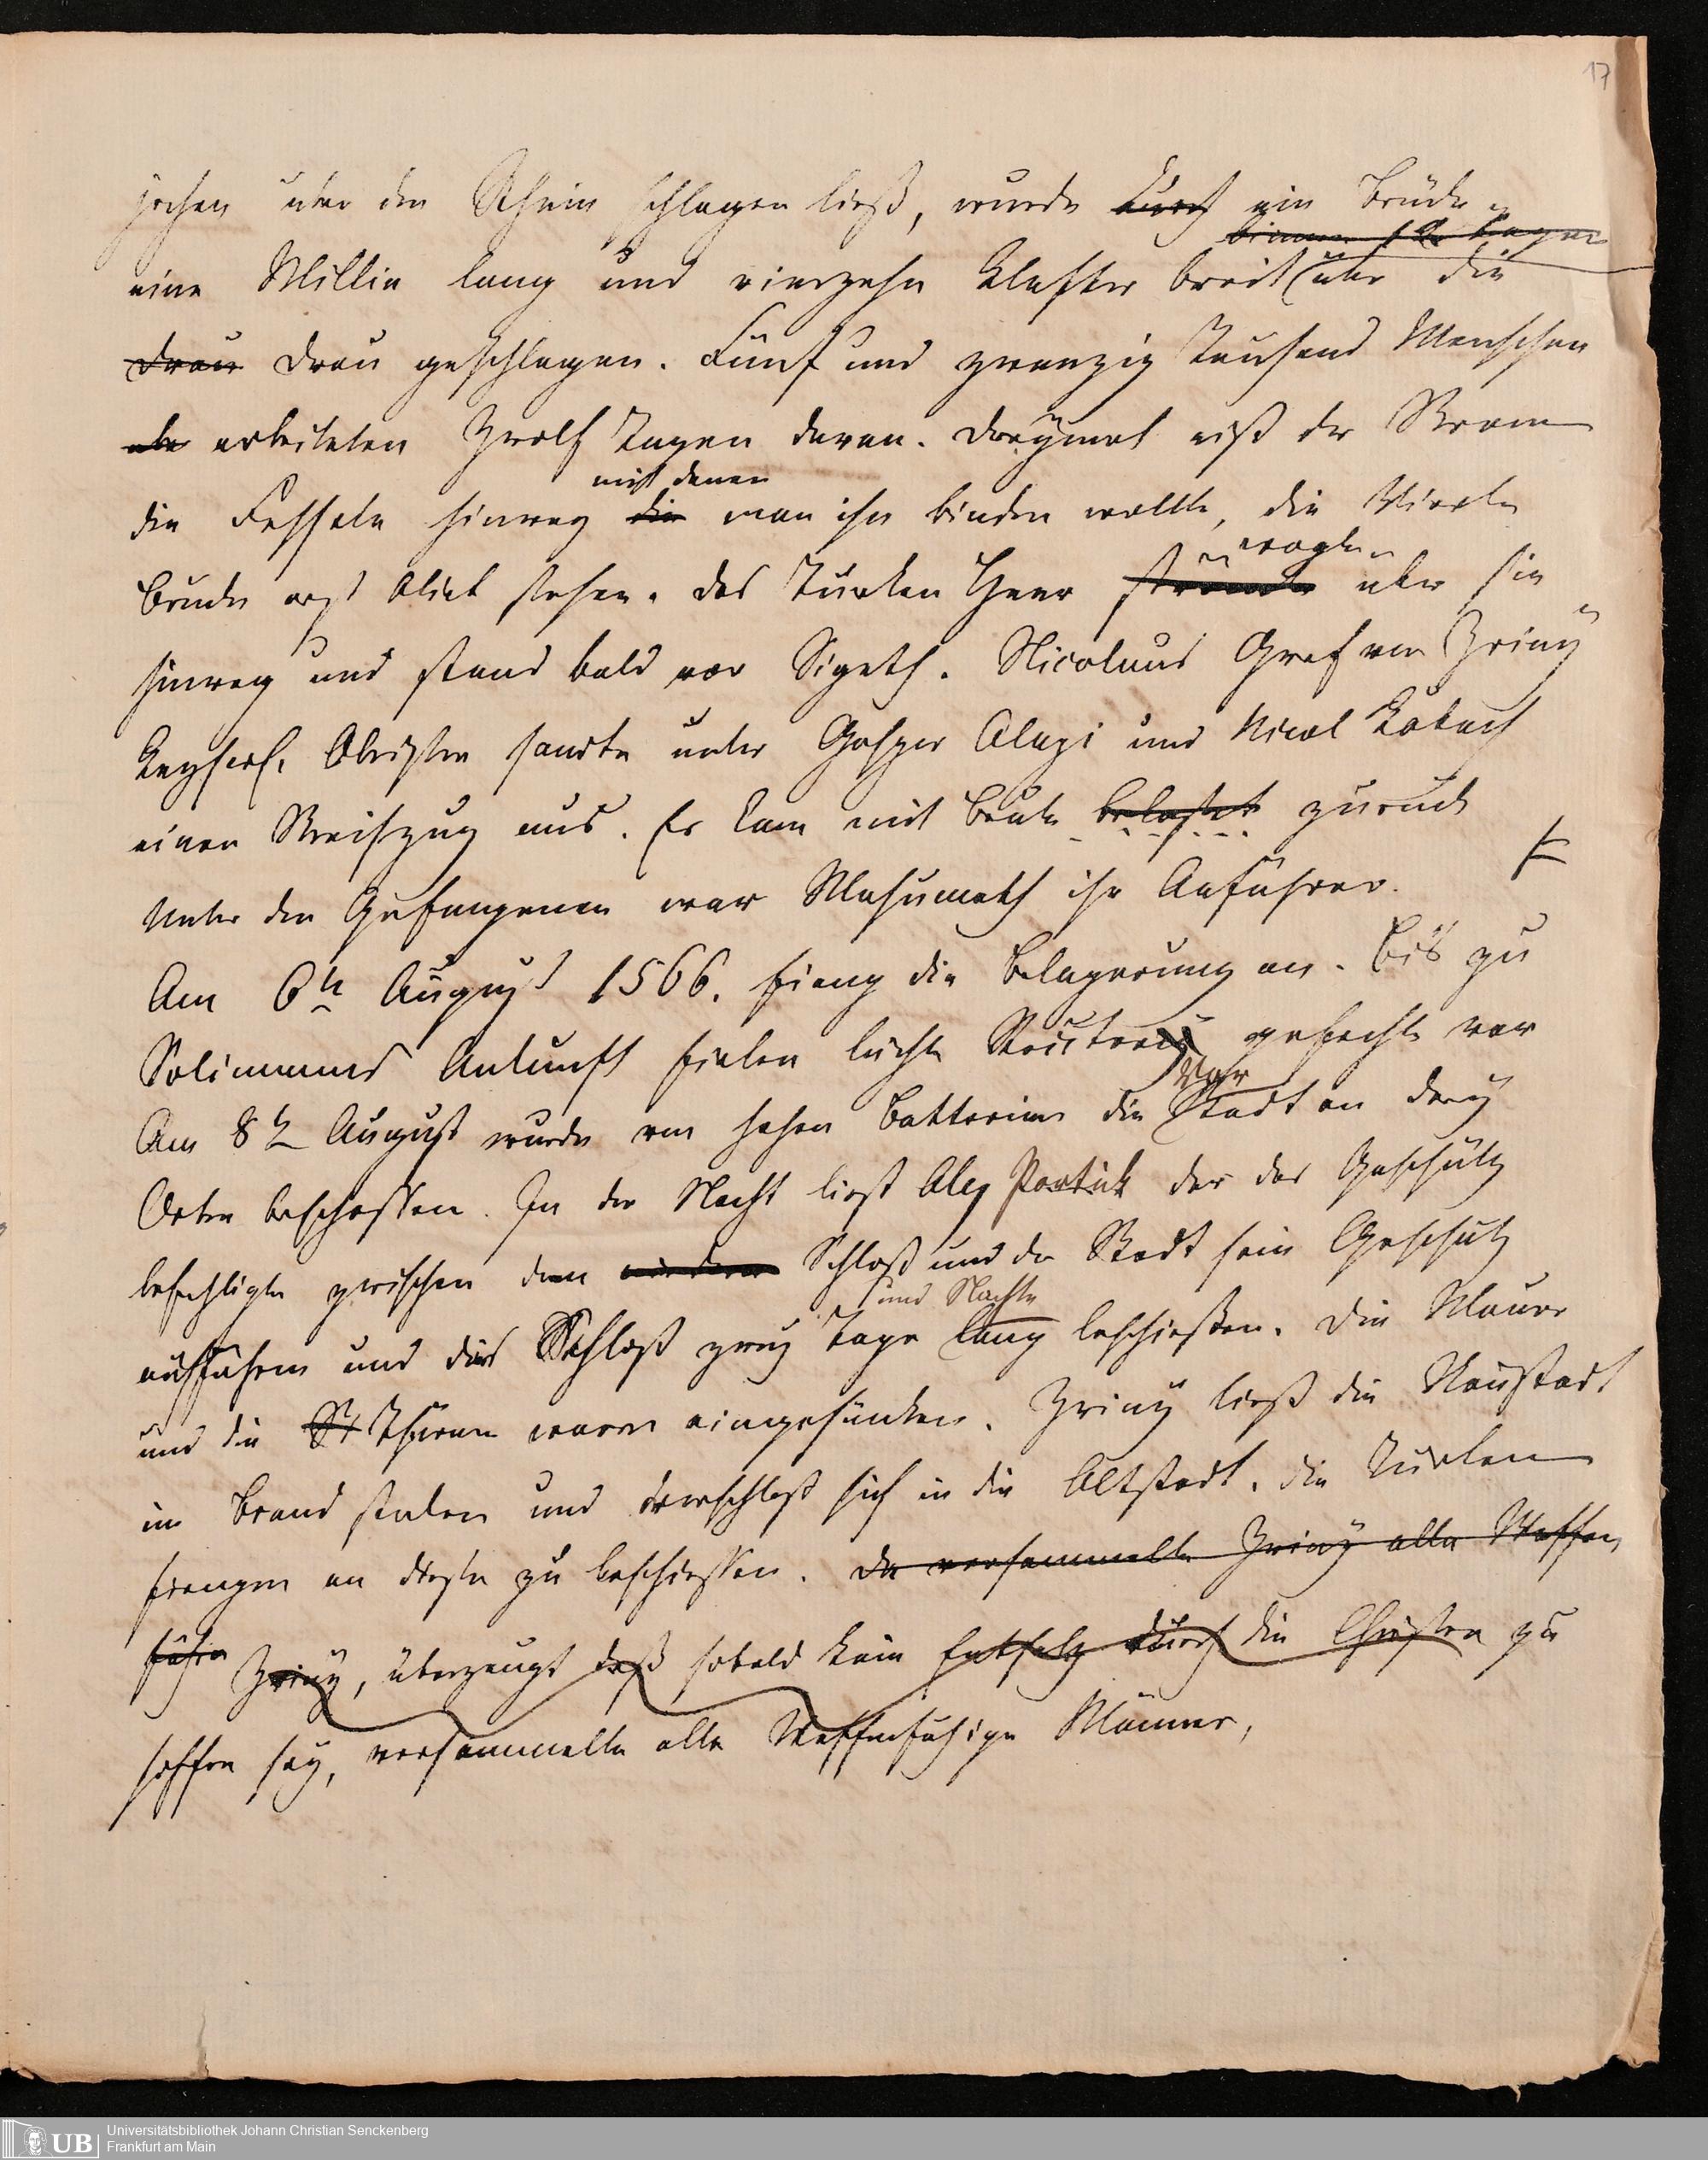 17
über den Rhein schlagen ließ, wurde durch ein Brücke
binnen 12 Tagen
eine Millie lang und vierzehn Klafter breit über die
Drau Drau geschlagen. Fünf und zwanzig Tausend Menschen
arbeiteten Zwölf Tagen daran. Dreymal riß der Strom
mit denen
die Fesseln hinweg die man ihn binden wollte, die Vierte
wogte
Brücke erst blieb stehen. Das Türken Heer strömte über sie
hinweg und stand bald vor Sigeth. Nicolaus Graf von Zriny
Kayserl. Obrister sandte unter Gaspar Alapi und Nicol Kobach
einen Streifzug aus. Er kam mit Beute belastet zurück
Unter den Gefangenen war Mahumeth ihr Anführer.
Am 6n August 1566. fieng die Belagerung an. Bis zu
Solimanns Ankunft fielen leichte gefechte vor
Vor
Am 8n August wurde von hohen Batterien die Stadt an drey
Orten beschossen. In der Nacht liest Aly Portuk der das Geschütz
befehligte zwischen dem Schloß und der Stadt sein Geschütz
und Nächte
aufführen und das Schloß zwey Tage lang beschießen. Die Mauer
und die St Thürme waren eingesunken. Zriny ließ die Neustadt
in Brand stecken und verschloß sich in die Altstadt. Die Türken
fiengen an diese zu beschiessen. Da versammelte Zriny alle Waffen
fähige Zriny, überzeugt daß sobald kein Entsatz durch die Christen zu
hoffen sey, versammelte alle Waffenfähige Männer,
Universitätsbibliothek Johann Christian Senckenberg
Frankfurt am Main
UB